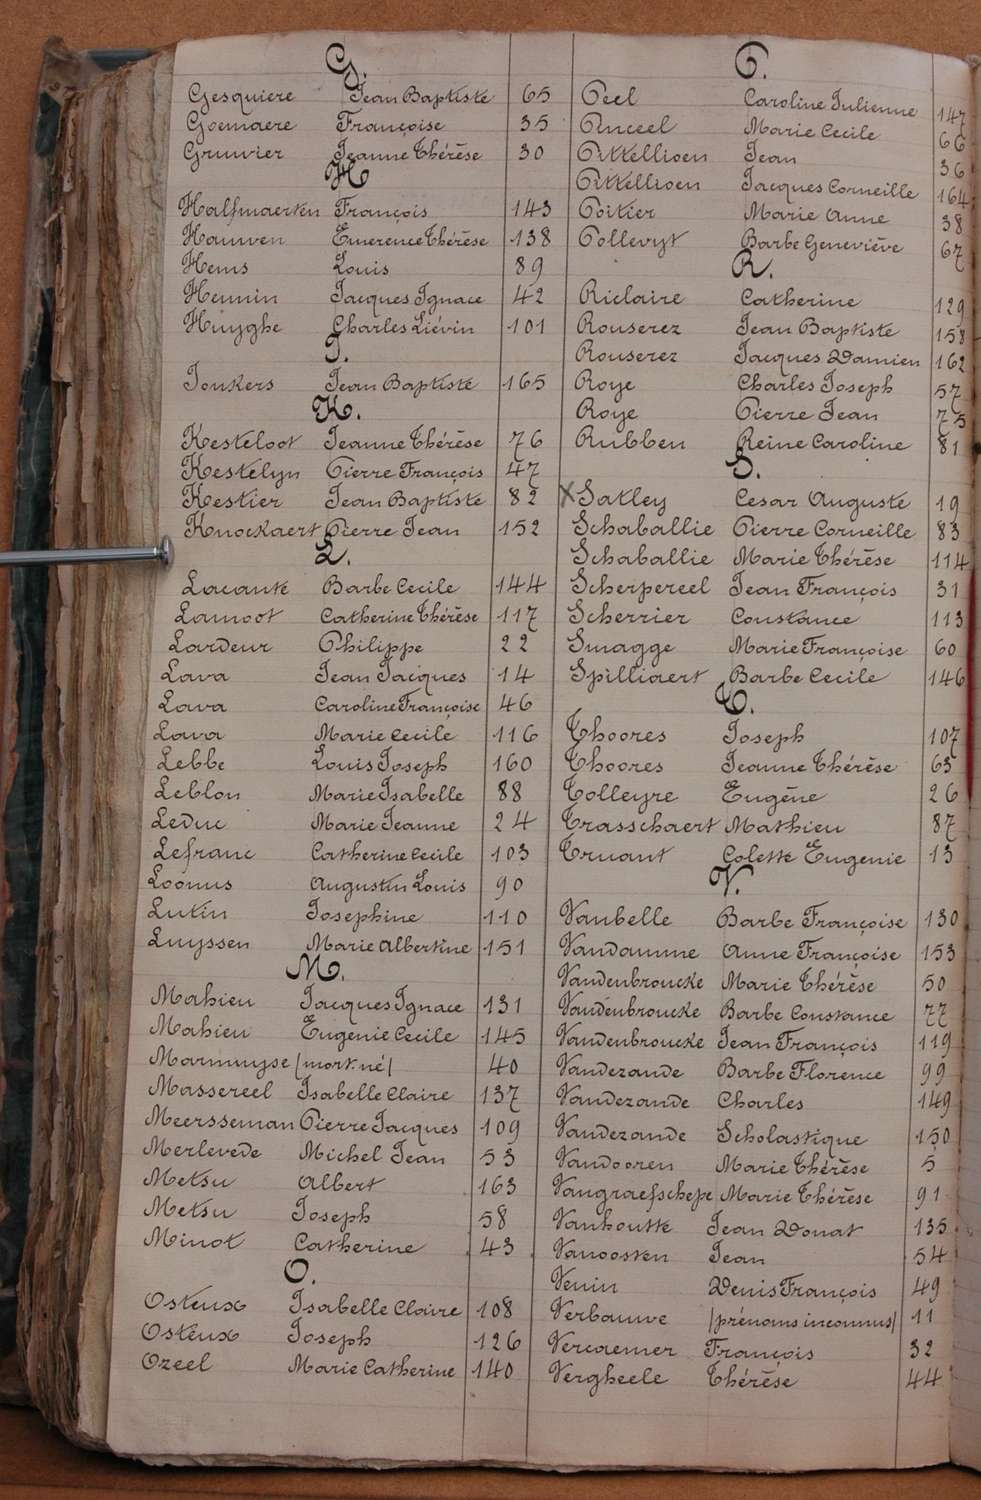 G.
Gesquiere Jean Baptiste 65
Goemaere Françoise 35
Gruwier Jeanne Thérèse 30
H
Halfmaerten François 143
Hauwen Emerence Thérèse 138
Hems Louis 89
Hennin Jacques Ignace 42
Huyghe Charles Liévin 101
J.
Jonkers Jean Baptiste 165
K.
Kesteloot Jeanne Thérèse 76
Kestelyn Pierre François 47
Kestier Jean Baptiste 82
Knockaert Pierre Jean 152
L.
Lacante Barbe Cecile 144
Lamoot Catherine Thérèse 117
Lardeur Philippe 22
Lava Jean Jacques 14
Lava Caroline Françoise 46
Lava Marie Cecile 116
Lebbe Louis Joseph 160
Leblon Marie Isabelle 88
Leduc Marie Jeanne 24
Lefranc Catherine Cecile 103
Loonus Augustin Louis 90
Lutin Josephine 110
Luyssen Marie Albertine 151
M.
Mahieu Jacques Ignace 131
Mahieu Eugenie Cecile 145
Marmuyse (mort-né) 40
Massereel Isabelle Claire 137
Meersseman Pierre Jacques 109
Merlevede Michel Jean 53
Metsu Albert 163
Metsu Joseph 58
Minot Catherine 43
O.
Osteux Isabelle Claire 108
Osteux Joseph 126
Ozeel Marie Catherine 140
P.
Peel Caroline Julienne 147
Pinceel Marie Cecile 66
Pittellioen Jean 36
Pittellioen Jacques Corneille 164
Poitier Marie Anne 38
Pollevyt Barbe Geneviève 67
R.
Riclaire Catherine 129
Rouserez Jean Baptiste 158
Rouserez Jacques Damien 162
Roye Charles Joseph 57
Roye Pierre Jean 75
Rubben Reine Caroline 81
S.
X Satley Cesar Auguste 19
Schaballie Pierre Corneille 83
Schaballie Marie Thérèse 114
Scherpereel Jean François 31
Scherrier Constance 113
Smagge Marie Françoise 60
Spilliaert Barbe Cecile 146
T.
Thoores Joseph 107
Thoores Jeanne Thérèse 63
Tolleyre Eugène 26
Trasschaert Mathieu 87
Truant Colette Eugenie 13
V.
Vanbelle Barbe Françoise 130
Vandamme Anne Françoise 153
Vandenbroucke Marie Thérèse 50
Vandenbroucke Barbe Constance 77
Vandenbroucke Jean François 119
Vandezande Barbe Florence 99
Vandezande Charles 149
Vandezande Scholastique 150
Vandooren Marie Thérèse 5
Vangraefschepe Marie Thérèse 91
Vanhoutte Jean Donat 135
Vanoosten Jean 54
Venin Denis François 49
Verbauwe (prénoms inconnus) 11
Vercaemer François 32
Vergheele Thérèse 44